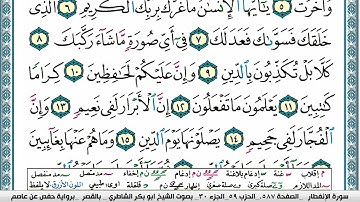 وَأَخَّرَتْ ۝٥ يَٰٓأَيُّهَا ٱلْإِنسَٰنُ مَا غَرَّكَ بِرَبِّكَ ٱلْكَرِيمِ ۝٦ ٱلَّذِى
خَلَقَكَ فَسَوَّىٰكَ فَعَدَلَكَ ۝٧ فِىٓ أَىِّ صُورَةٍ مَّا شَآءَ رَكَّبَكَ ۝٨
كَلَّا بَلْ تُكَذِّبُونَ بِٱلدِّينِ ۝٩ وَإِنَّ عَلَيْكُمْ لَحَٰفِظِينَ ۝١٠ كِرَامًا
كَٰتِبِينَ ۝١١ يَعْلَمُونَ مَا تَفْعَلُونَ ۝١٢ إِنَّ ٱلْأَبْرَارَ لَفِى نَعِيمٍ ۝١٣ وَإِنَّ
ٱلْفُجَّارَ لَفِى جَحِيمٍ ۝١٤ يَصْلَوْنَهَا يَوْمَ ٱلدِّينِ ۝١٥ وَمَا هُمْ عَنْهَا بِغَآئِبِينَ
سورة الإنفطار . الصفحة ٥٨٧ . الحزب ٥٩ . الجزء ٣٠ . بصوت الشيخ أبو بكر الشاطري . بالقصر . برواية حفص عن عاصم